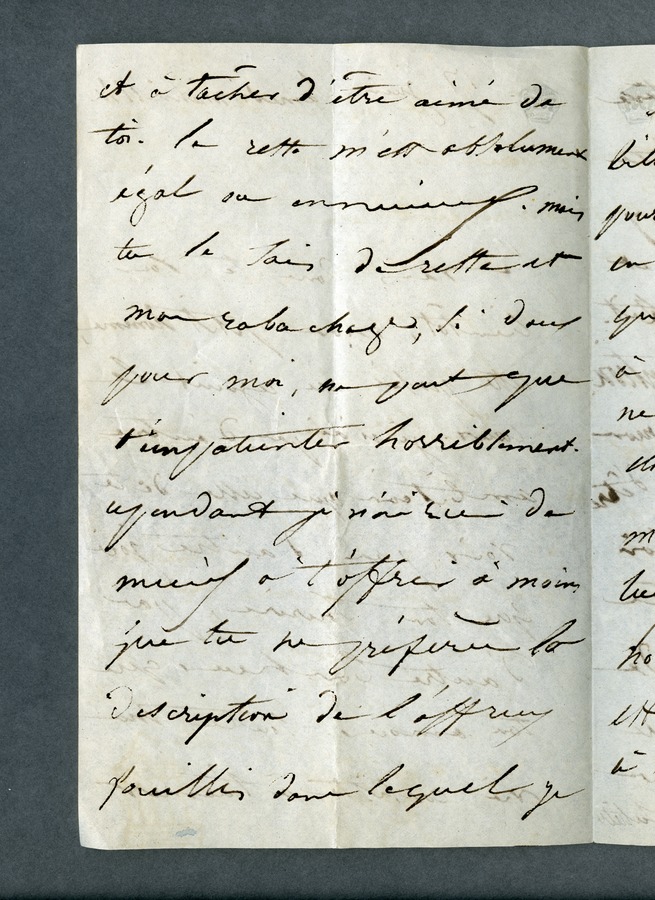 et à tâcher d'être aimé de
toi. le reste m'est absolument
égal ou ennuieux. mais
tu le sais de reste et
mon rabachage, si doux
pour moi, ne peut que
t'impatienter horriblement.
cependant je n'ai rien de
mieux à t'offrir à moins
que tu ne préfères la
description de l'affreux
fouillis dans lequel je
pour
en
à
ne
à